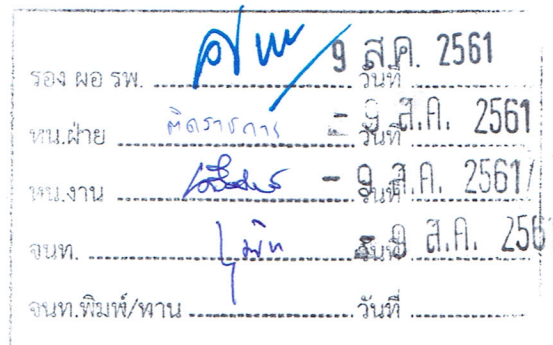 รอง ผอ รพ. วันที่ 9 ส.ค. 2561
หน.ฝ่าย ติดราชการ วันที่ - 9 ส.ค. 2561
หน.งาน วันที่ - 9 ส.ค. 2561
จนท. วันที่ - 9 ส.ค. 256
จนท.พิมพ์/ทาน วันที่